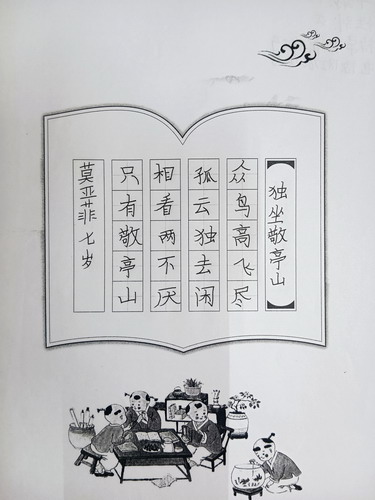 独坐敬亭山
众鸟高飞尽
孤云独去闲
相看两不厌
只有敬亭山
莫亚菲 七岁